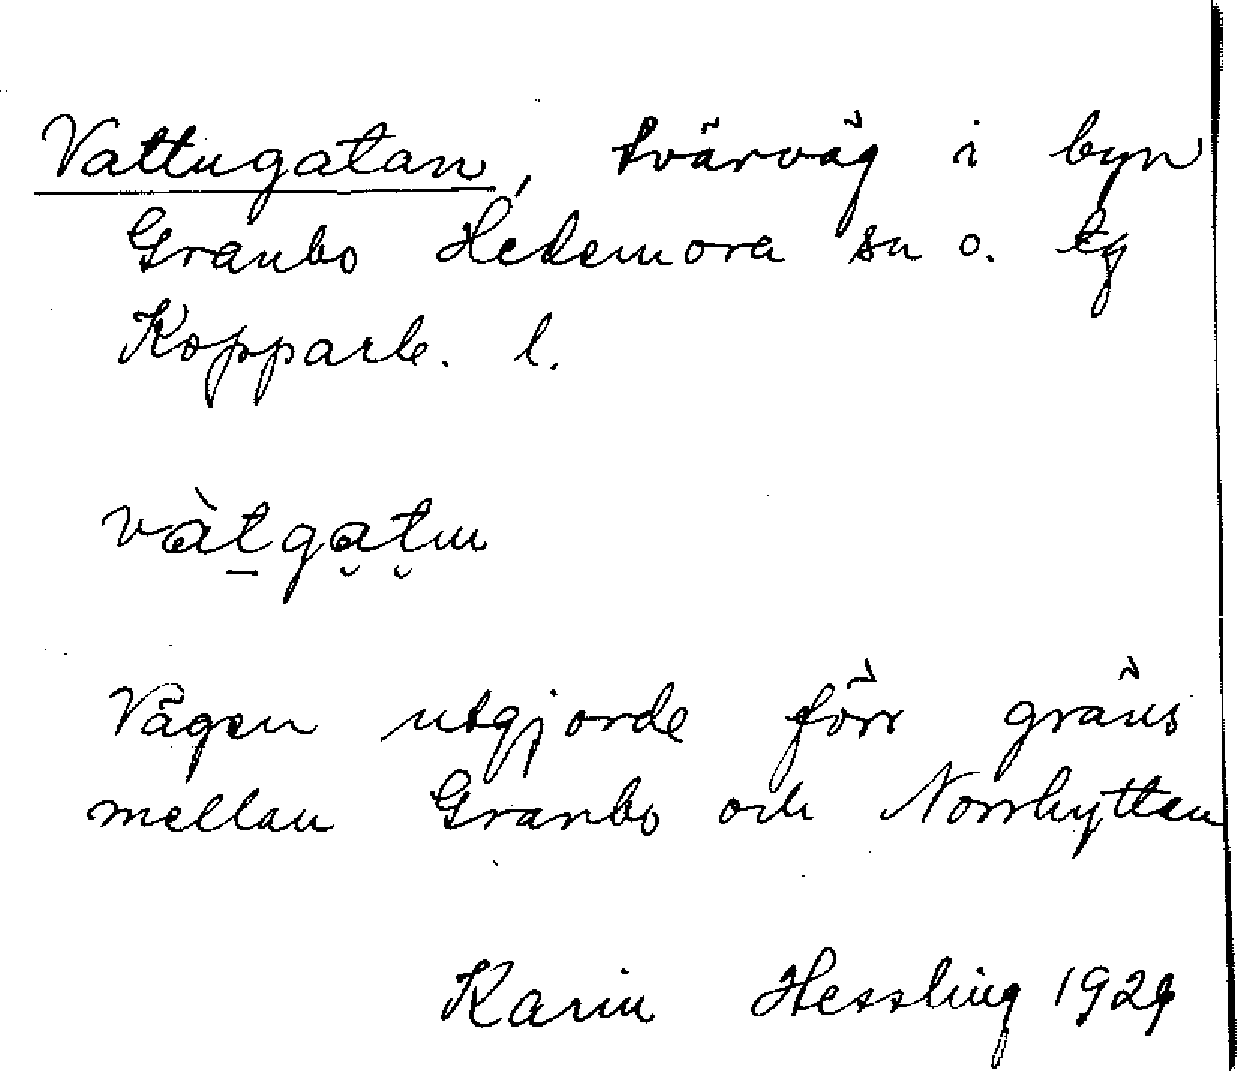 Vattugatan, tvärväg i byn
Granbo Hedemora sn o. tg
Kopparb. l.
vàt̲ga̮t̮ın
Vägen utgjorde förr gräns
mellan Granbo och Norrhyttan
Karin Hessling 1929